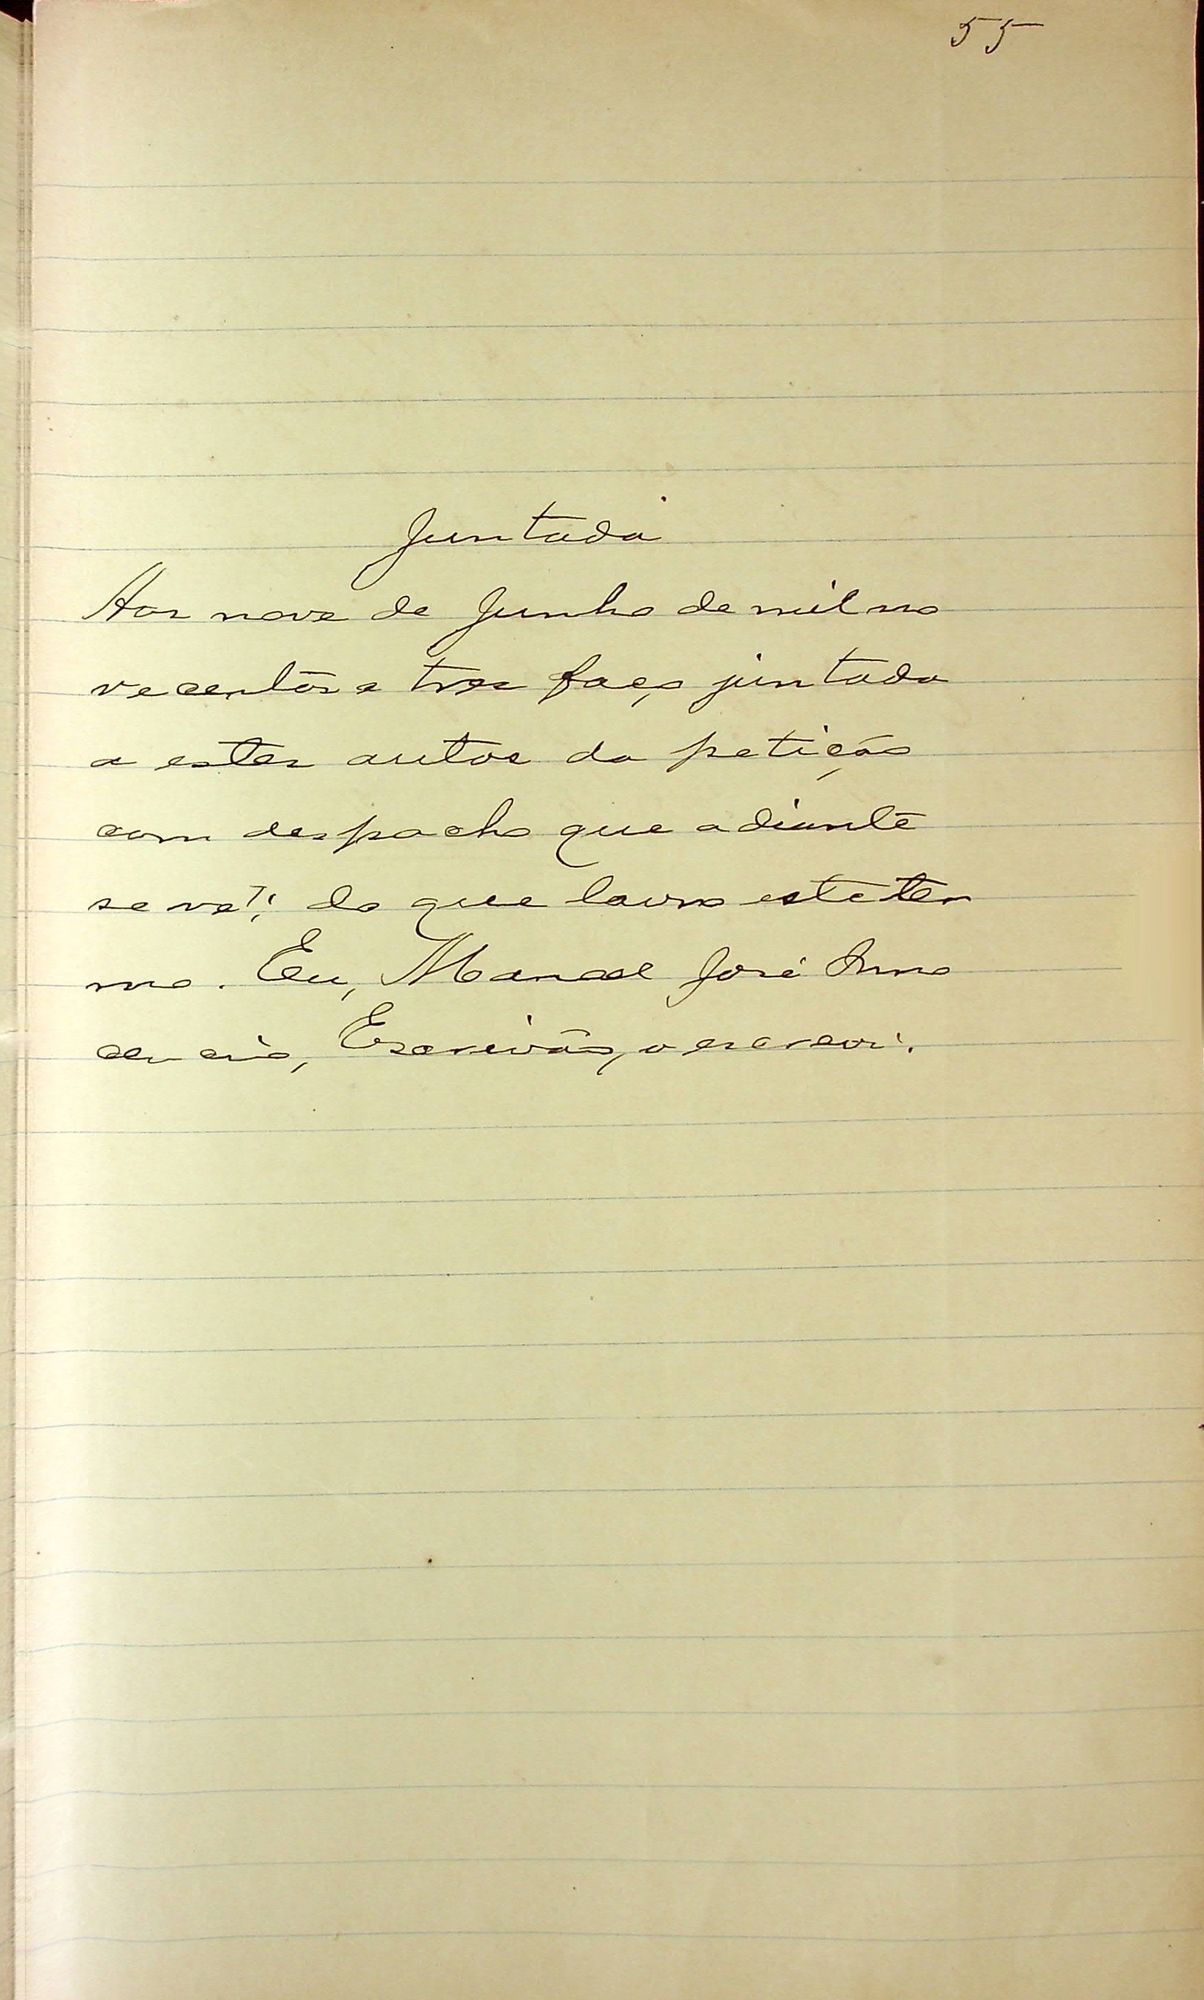 55
Juntada
Aos nove de Junho de mil no
vecentos e tres faço juntada
a estes autos da petição
com despacho que adiante
se vê; do que lavro este ter
mo. Eu, Manoel José Inno
cencio, Escrivão, o escrevi.